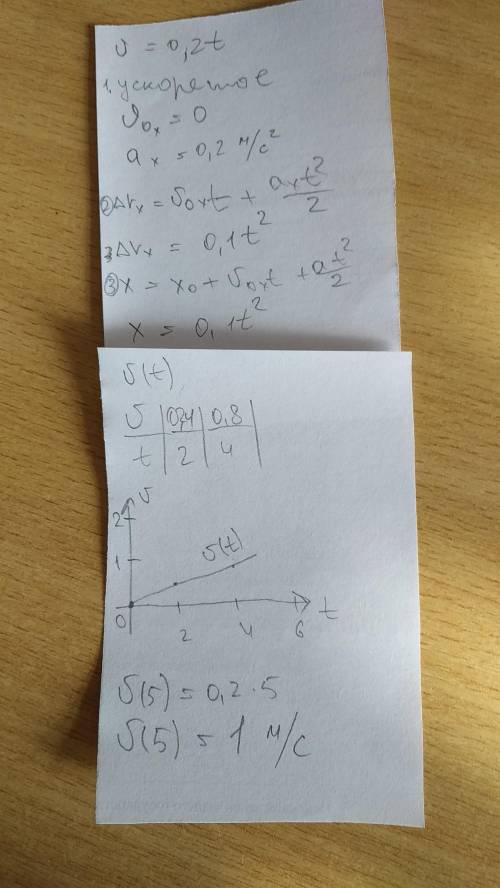 υ = 0,2t
1. ускоретое
υ₀ₓ = 0
aₓ = 0,2 м/с²
② Δrₓ = υ₀ₓt + aₓt²/2
3 Δrₓ = 0,1t²
③ x = x₀ + υ₀ₓt + at²/2
x = 0,1t²
υ(t)
υ | 0,4 | 0,8 |
t | 2 | 4 |
υ
2
υ(t)
1
0 2 4 6 t
υ(5) = 0,2 · 5
υ(5) = 1 м/с